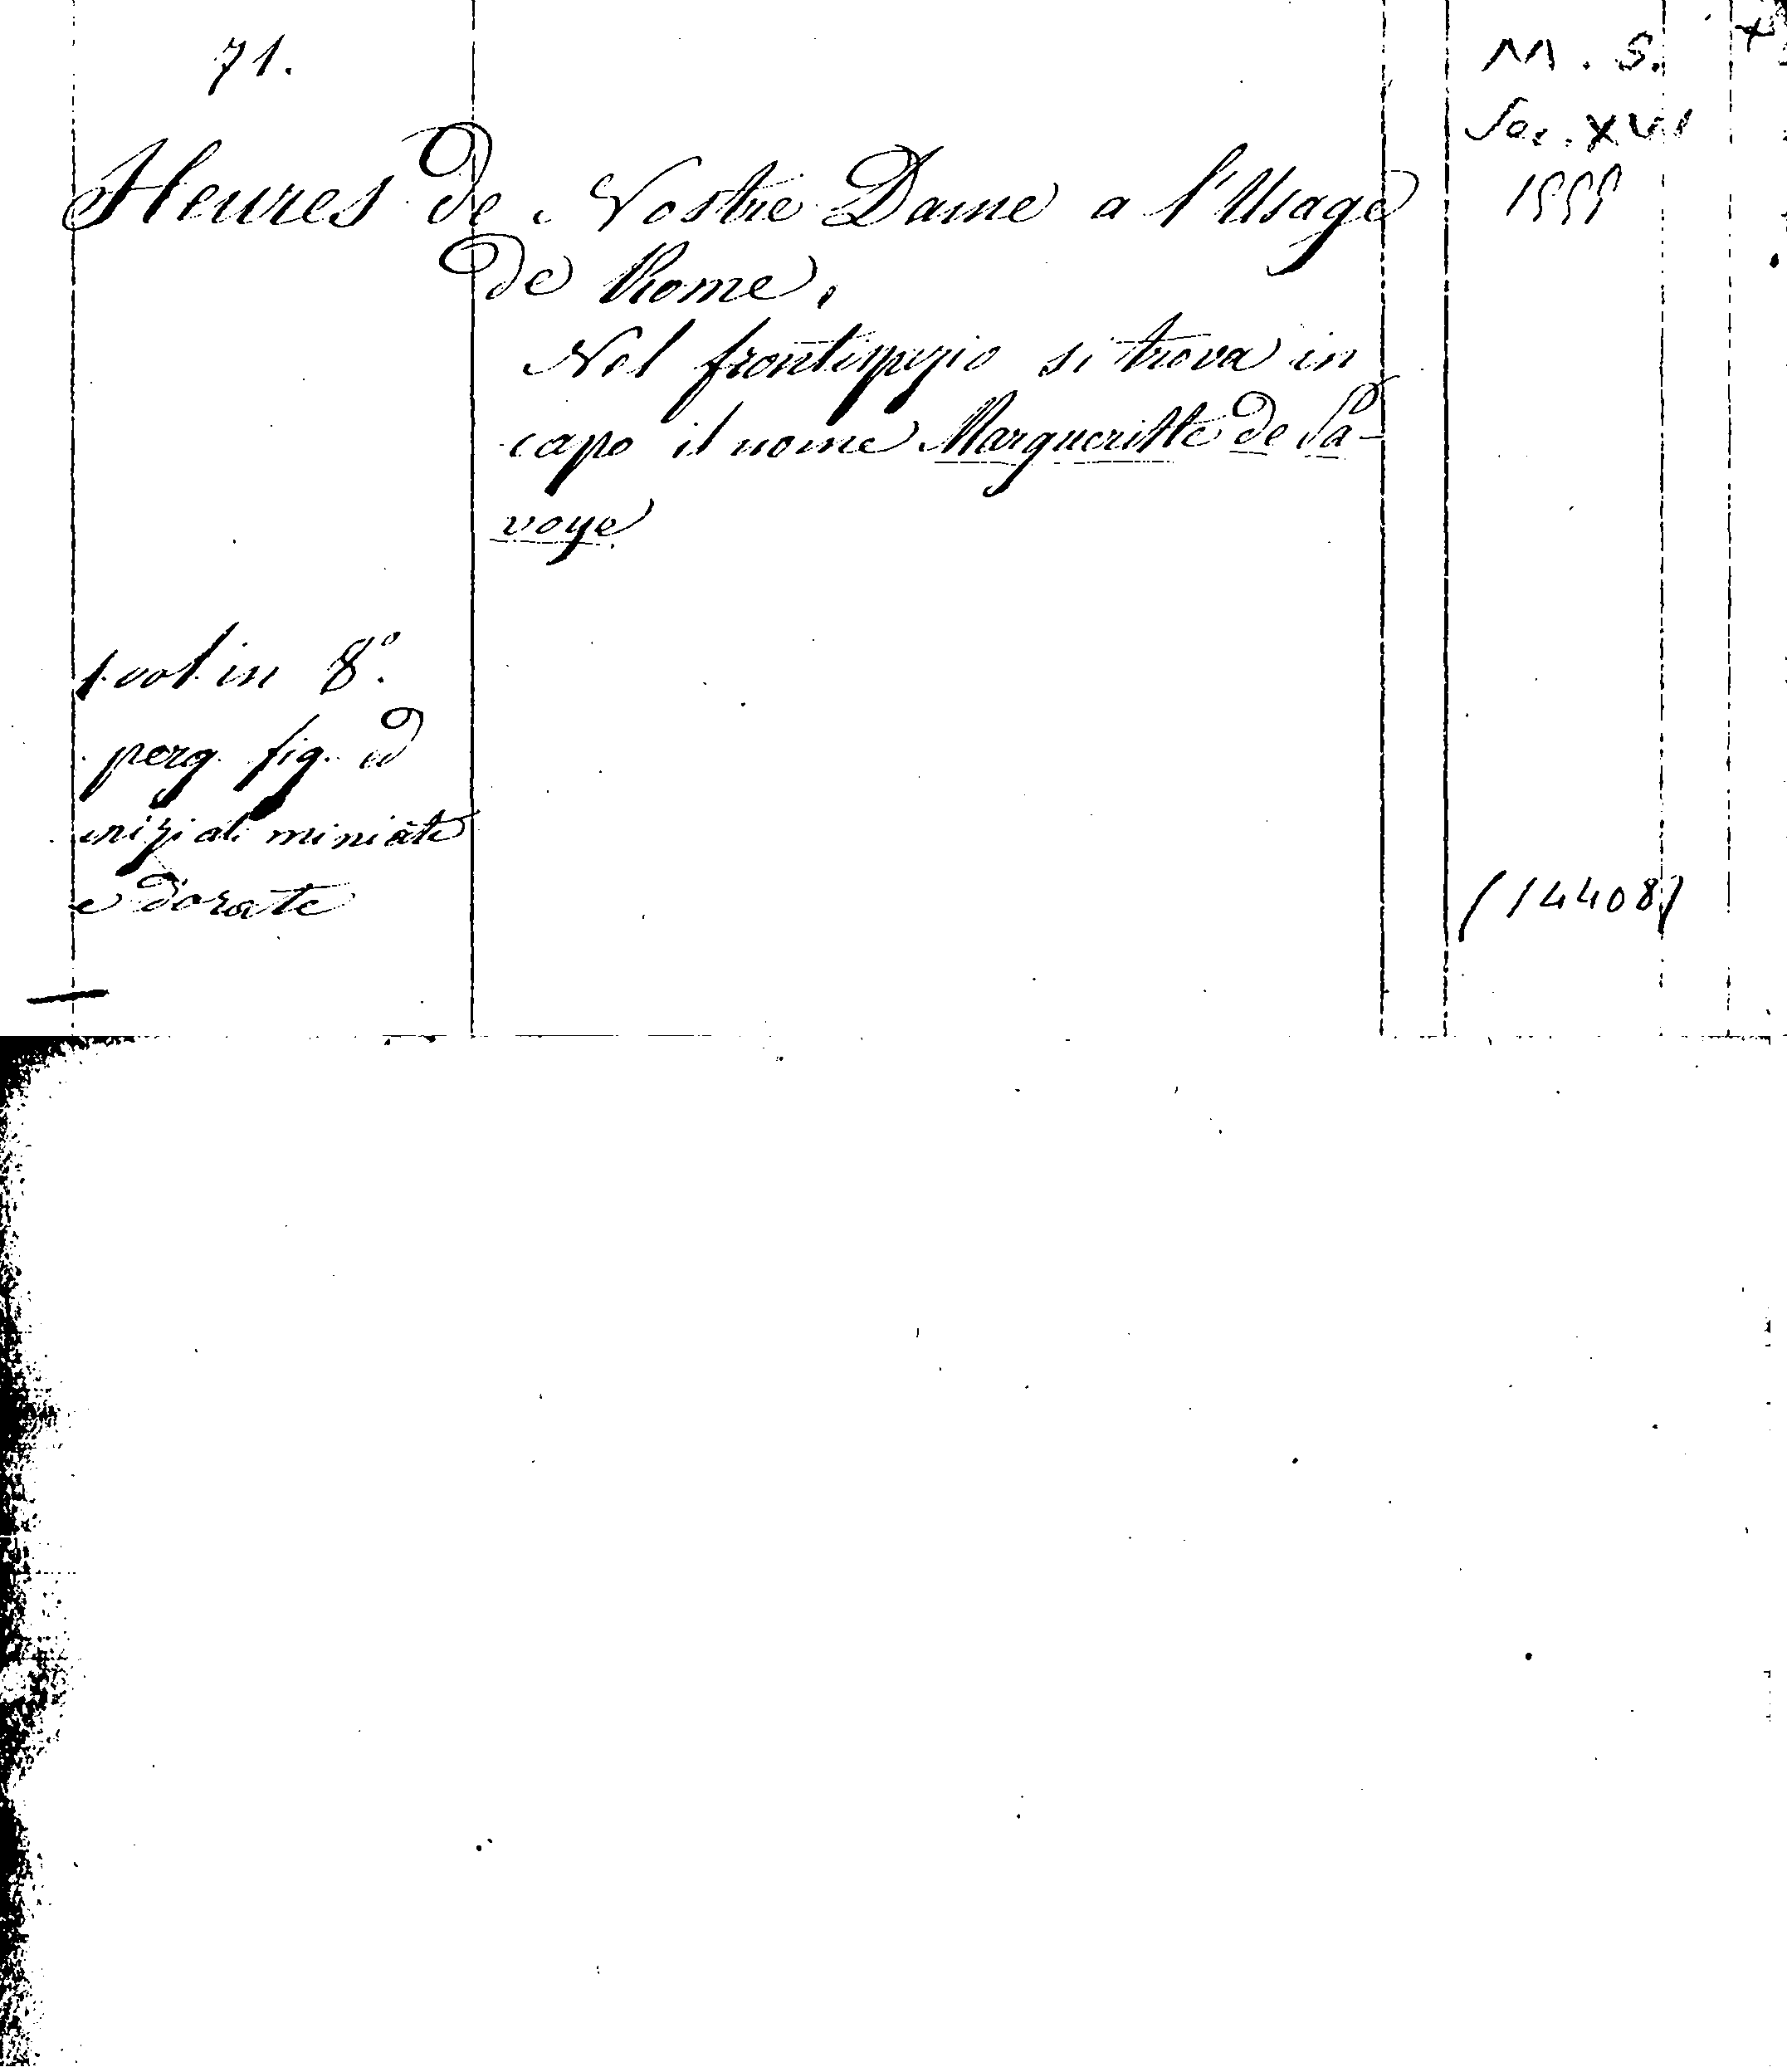 71.
M. S.
Sec. XVI
Heures de Nostre Dame a l'Usage
de Rome.
Nel frontispizio si trova in
capo il nome Margueritte de Sa-
voye
1 vol in 8.º
perg. fig. ed
iniziali miniate
e dorate
(14408)